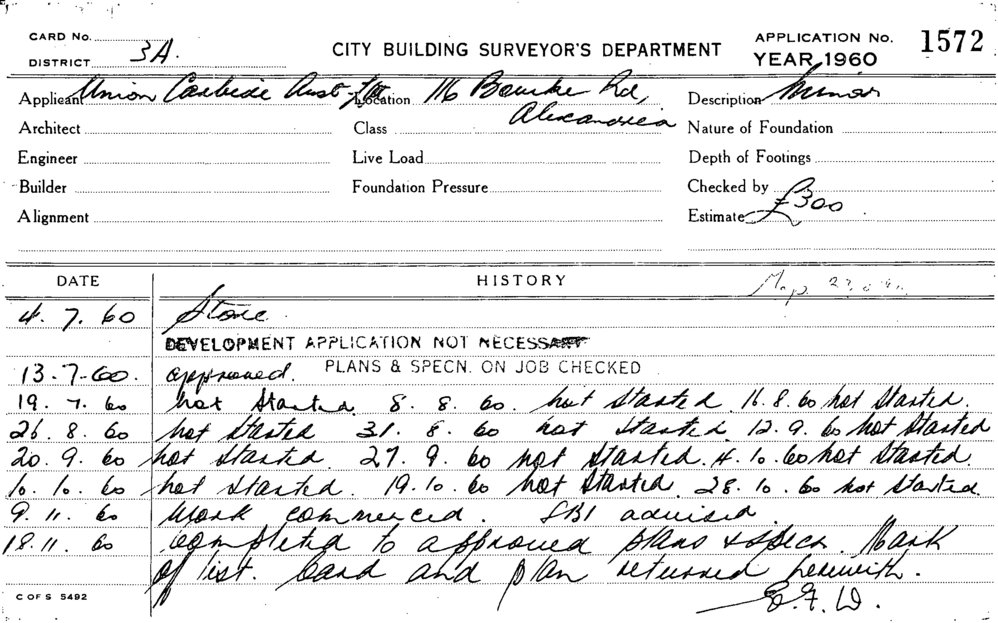 CARD No. CITY BUILDING SURVEYOR'S DEPARTMENT APPLICATION No. 1572
DISTRICT 3A. YEAR 1960
Applicant Union Carbide Aust Location 116 Bourke Rd, Description Minor
Alexandria
Architect Class Nature of Foundation
Engineer Live Load Depth of Footings
Builder Foundation Pressure Checked by
Alignment Estimate £300
DATE HISTORY Map
4. 7. 60 Store
DEVELOPMENT APPLICATION NOT NECESSARY
13-7-60. approved. PLANS & SPECN. ON JOB CHECKED
19. 7. 60 not started 8. 8. 60. not started 16. 8. 60 not started.
26. 8. 60 not started 31. 8. 60 not started 12. 9. 60 not started
20. 9. 60 not started. 27. 9. 60 not started. 4. 10. 60 not started.
10. 10. 60 not started. 19. 10. 60 not started 28. 10. 60 not started.
9. 11. 60 Work commenced. SBI advised
18. 11. 60 completed to approved plans & specn. Mark
off list. Card and plan returned herewith.
E.F.W.
C OF S 5492